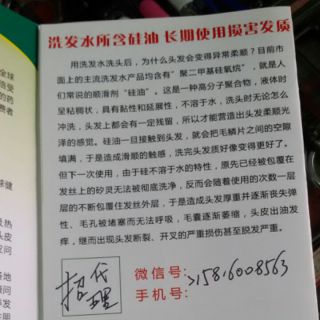 洗发水所含硅油 长期使用损害发质
用洗发水洗头后，为什么头发会变得异常柔顺？目前市
面上的主流洗发水产品均含有"聚二甲基硅氧烷"，就是人
们常说的润滑剂"硅油"。这是一种高分子聚合物，液体时
呈粘稠状，具有黏性和延展性，不溶于水，洗头时无论怎么
冲洗，头发上都会有一定残留，所以才能营造出头发柔顺光
泽的感觉。硅油一旦接触到头发，就会把毛鳞片之间的空隙
填满，于是造成滑顺的触感，洗完头发质好像变得更好了。
但下一次使用，由于硅不溶于水的特性，原先已经被包覆在
发丝上的砂灵无法被彻底洗净，反而会随着使用的次数一层
层的不断包覆住发丝外层，于是造成头发厚重并逐渐丧失弹
性、毛孔被堵塞而无法呼吸，毛囊逐渐萎缩，头皮出油发
痒，继而出现头发断裂、开叉的严重损伤甚至脱发严重。
招代理
微信号：15816008563
手机号：
全球
倍受
的药
费者
球健
及热
头皮
反问
基地
顾问